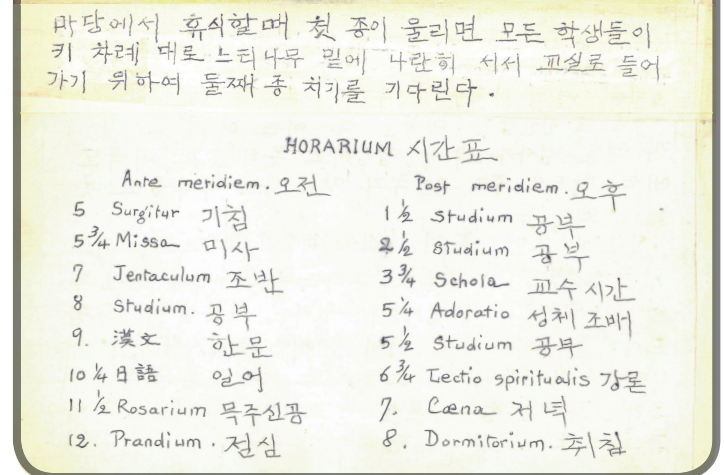 마당에서 휴식할 때 첫 종이 울리면 모든 학생들이
키 차례 대로 느티나무 밑에 나란히 서서 교실로 들어
가기 위하여 둘째 종 치기를 기다린다.
HORARIUM 시간표
Ante meridiem. 오전
5 Surgitur 기침
5 3/4 Missa 미사
7 Jentaculum 조반
8 Studium. 공부
9. 漢文 한문
10 1/4 日語 일어
11 1/2 Rosarium 목주신공
12. Prandium. 점심
Post meridiem. 오후
1 1/2 Studium 공부
2 1/2 Studium 공부
3 3/4 Schola 교수 시간
5 1/4 Adoratio 성체 조배
5 1/2 Studium 공부
6 3/4 Lectio spiritualis 강론
7. Cœna 저녁
8. Dormitorium. 취침